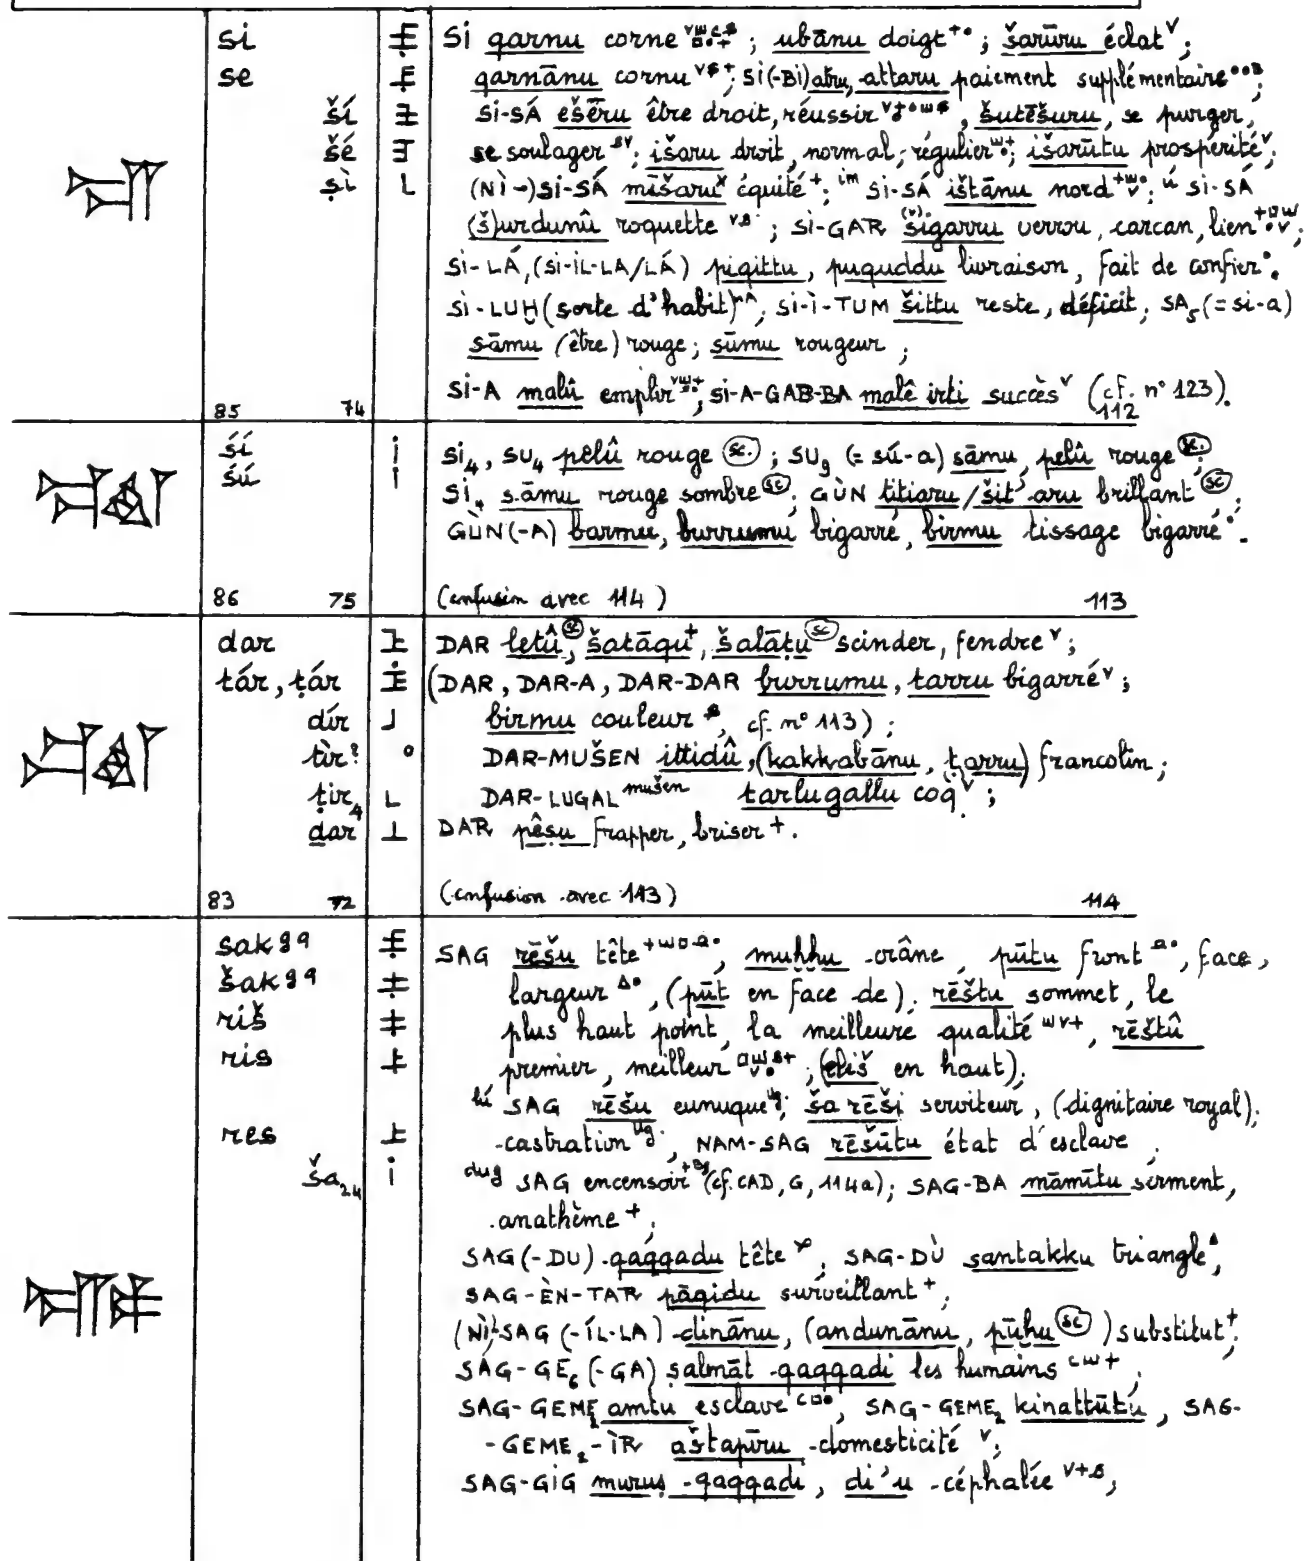 si SI qarnu corne ; ubānu doigt ; šarūru éclat ;
se qarnānu cornu ; SI(-BI) atru, attaru paiement supplémentaire ;
ší SI-SÁ ešēru être droit, réussir , šutēšuru, se purger,
šé se soulager ; išaru droit, normal, régulier ; išarūtu prospérité ;
ṣì (NÌ-)SI-SÁ mīšaru équité ; im SI-SÁ ištānu nord ; ú SI-SÁ
(š)urdunû roquette ; SI-GAR šigarru verrou, carcan, lien ;
SI-LÁ, (SI-ÌL-LA/LÁ) piqittu, puquddu livraison, fait de confier .
SI-LUḪ (sorte d'habit) ; SI-Ì-TUM šittu reste, déficit, SA₅ (= si-a)
sāmu (être) rouge ; sūmu rougeur ;
SI-A malû emplir ; SI-A-GAB-BA malê irti succès (cf. n° 123).
85 74 112
śí SI₄, SU₄ pelû rouge (sc.) ; SU₉ (= sú-a) sāmu, pelû rouge (sc.) ;
śú SI₄ sāmu rouge sombre (sc) ; GÙN titiaru/šit'aru brillant (sc) ;
GÙN(-A) barmu, burrumu bigarré, birmu tissage bigarré .
86 75 (confusion avec 114) 113
dar DAR letû (sc), šatāqu, šalāṭu (sc) scinder, fendre ;
tár, ṭár (DAR, DAR-A, DAR-DAR burrumu, tarru bigarré ;
dír birmu couleur , cf. n° 113) ;
tìr? DAR-MUŠEN ittidû, (kakkabānu, tarru) francolin ;
ṭir₄ DAR-LUGAL mušen tarlugallu coq ;
ḏar DAR pêṣu frapper, briser .
83 72 (confusion avec 113) 114
sak g q SAG rēšu tête , muḫḫu crâne , pūtu front , face,
šak g q largeur , (pūt en face de), rēštu sommet, le
riš plus haut point, la meilleure qualité , rēštû
ris premier, meilleur , (eliš en haut),
lú SAG rēšu eunuque ; ša rēši serviteur, (dignitaire royal),
res castration , NAM-SAG rēšūtu état d'esclave ,
ša₂₄ dug SAG encensoir (cf. CAD, G, 114a) ; SAG-BA māmītu serment,
anathème ,
SAG(-DU) qaqqadu tête , SAG-DÙ santakku triangle ,
SAG-ÈN-TAR pāqidu surveillant ,
(NÌ)-SAG (-ÍL-LA) dinānu, (andunānu, pūḫu (sc) ) substitut ,
SAG-GE₆ (-GA) ṣalmāt qaqqadi les humains ,
SAG-GEME₂ amtu esclave , SAG-GEME₂ kinattūtu , SAG-
-GEME₂-ÌR aštapīru domesticité ,
SAG-GIG muruṣ qaqqadi, di'u céphalée ,